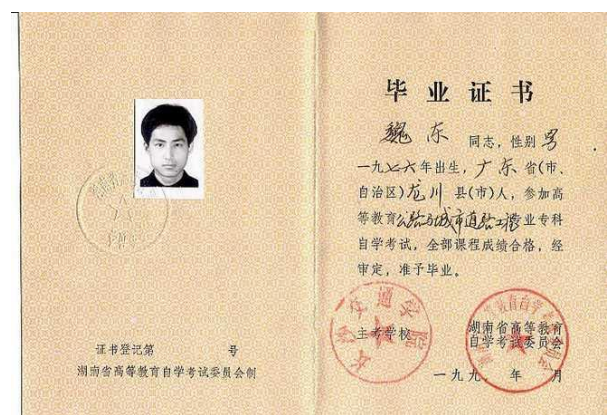 证书登记第 号
湖南省高等教育自学考试委员会制
毕业证书
魏东 同志,性别 男
一九七六年出生,广东省(市、
自治区)龙川县(市)人,参加高
等教育公路与城市道路工程专业专科
自学考试,全部课程成绩合格,经
审定,准予毕业。
主考学校
湖南省高等教育
自学考试委员会
一九九 年 月
长沙交通学院